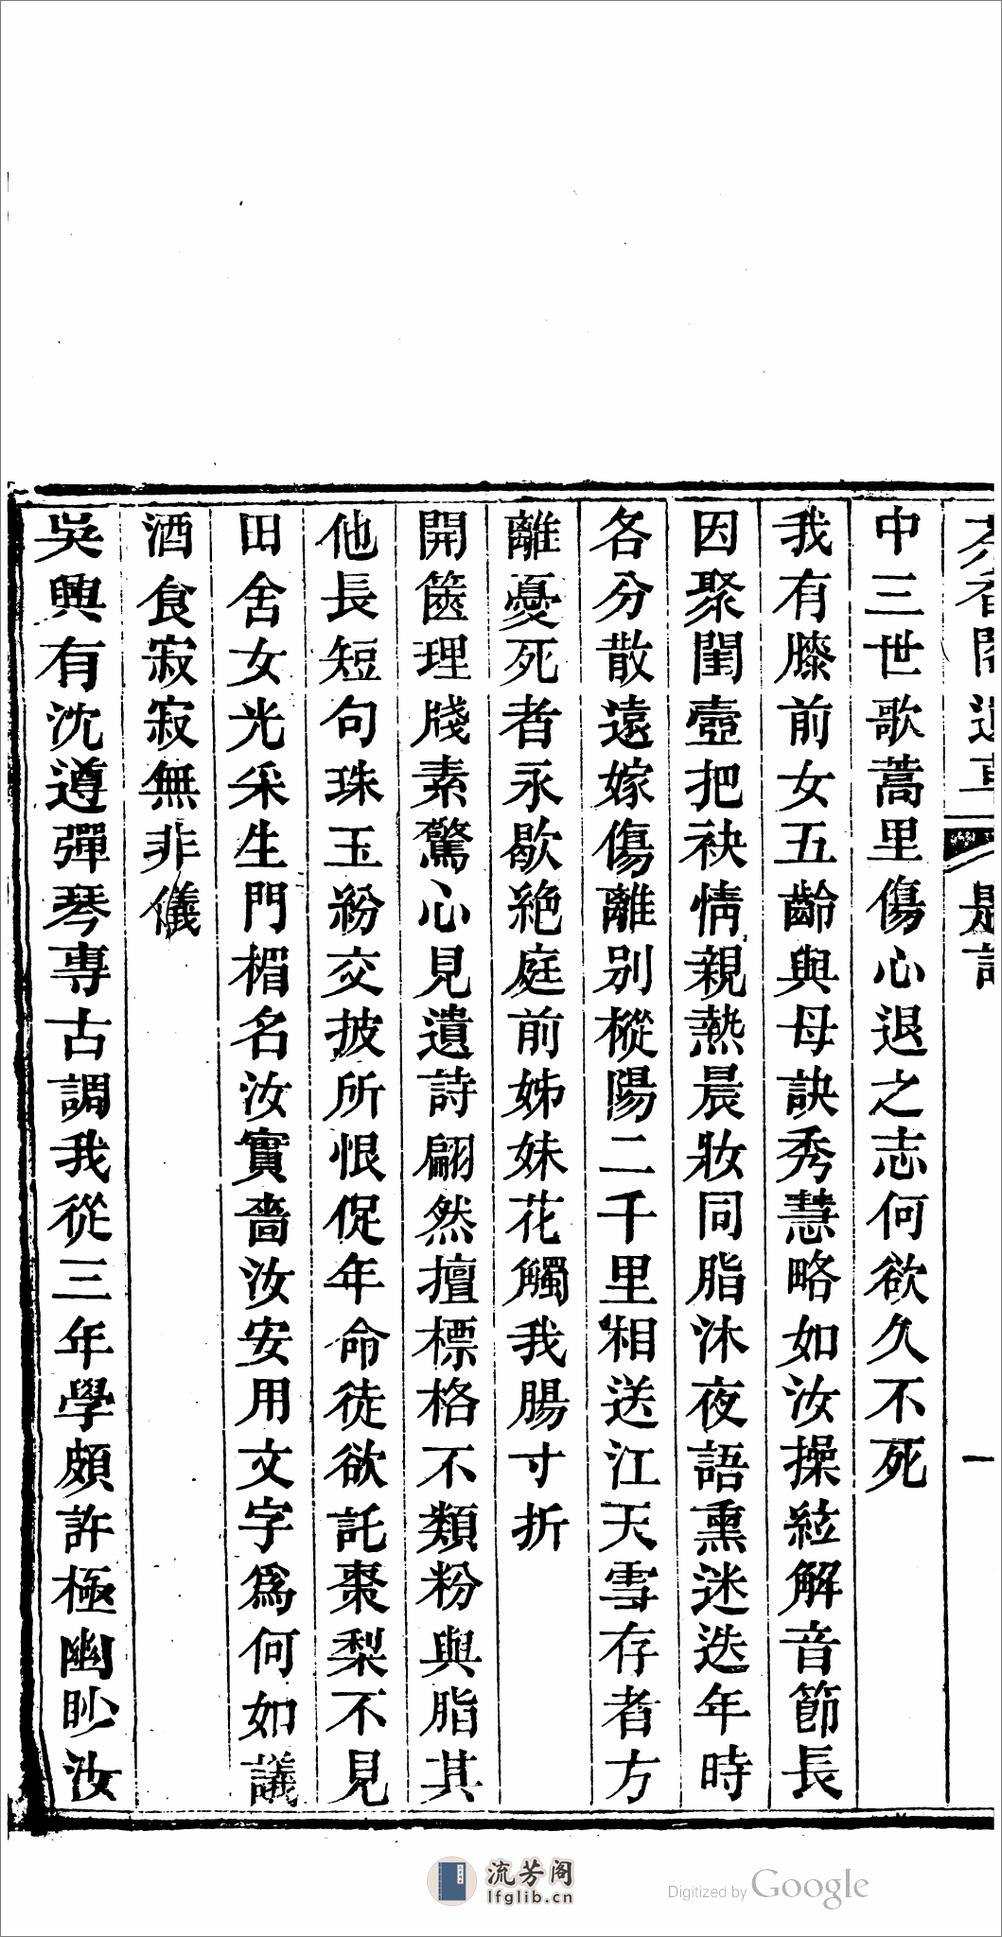 題詞
一
中三世歌蒿里傷心退之志何欲久不死
我有膝前女五齡與母訣秀慧略如汝操絃解音節長
因聚閨壼把袂情親熱晨妝同脂沐夜語熏迷迭年時
各分散遠嫁傷離別樅陽二千里相送江天雪存者方
離憂死者永歇絕庭前姊妹花觸我腸寸折
開篋理牋素驚心見遺詩翩然擅標格不類粉與脂其
他長短句珠玉紛交披所恨促年命徒欲託棗梨不見
田舍女光采生門楣名汝實嗇汝安用文字爲何如議
酒食寂寂無非儀
吳興有沈遵彈琴專古調我從三年學頗許極幽眇汝
流芳阁
lfglib.cn
Digitized by Google